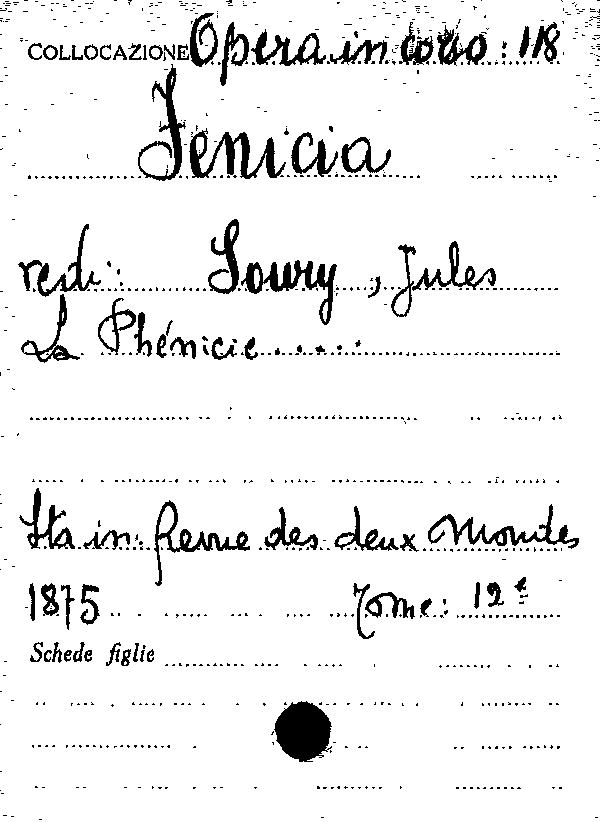 COLLOCAZIONE Opera in corso: 118
Fenicia
vedi: Soury, Jules
La Phénicie.....
Sta in: Revue des deux Mondes
1875 Tome: 12e
Schede figlie